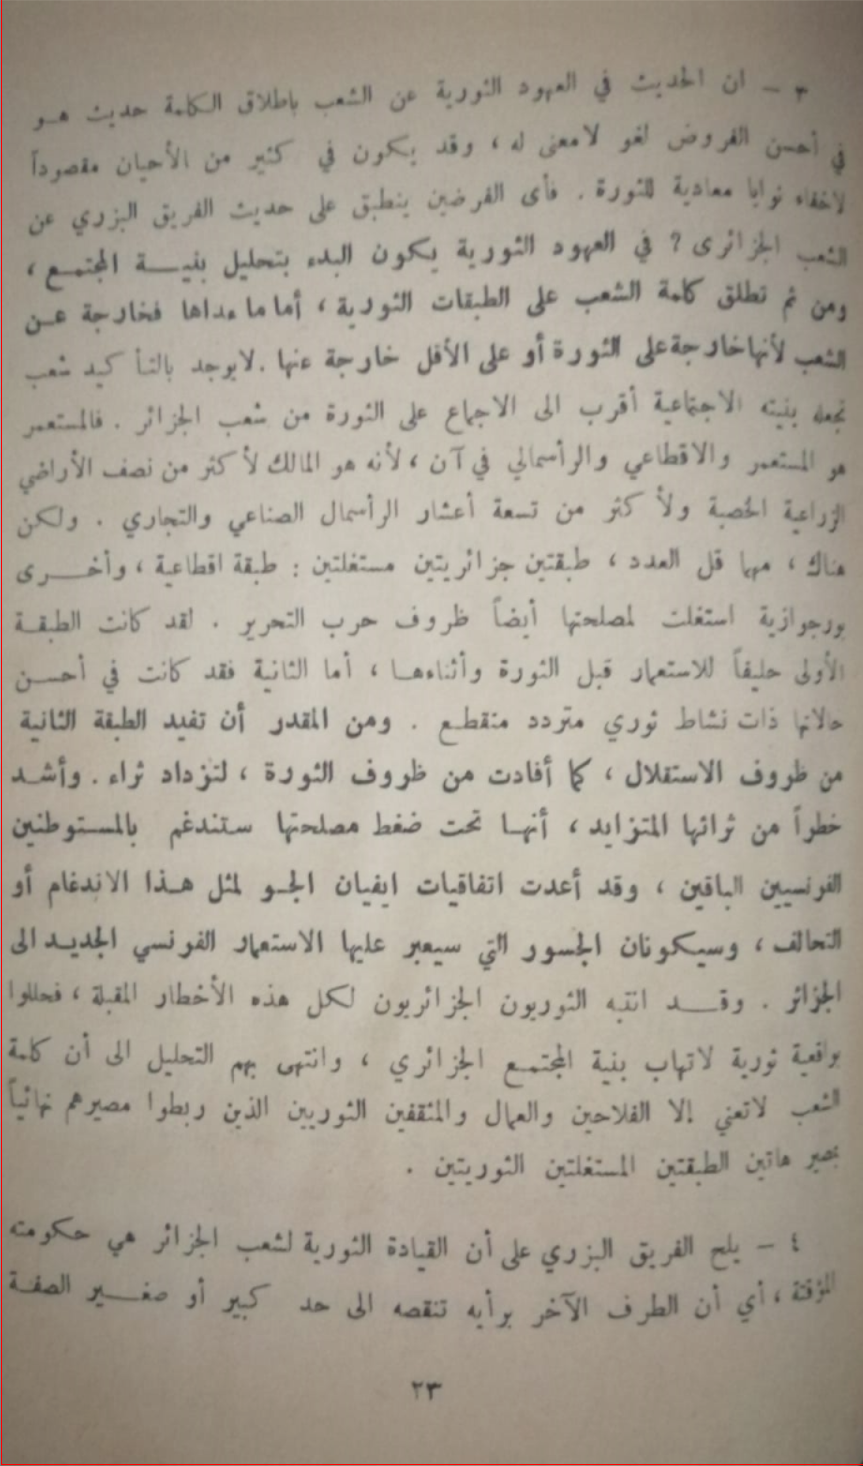 ٣ – ان الحديث في العهود الثورية عن الشعب باطلاق الكلمة حديث هـو
في أحسن الفروض لغو لامعنى له ، وقد يكون في كثير من الأحيان مقصوداً
لاخفاء نوايا معادية للثورة . فأى الفرضين ينطبق على حديث الفريق البزري عن
الشعب الجزائرى ? في العهود الثورية يكون البدء بتحليل بنيـــة المجتمـع ،
ومن ثم تطلق كلمة الشعب على الطبقات الثورية ، أما ما عداها فخارجة عـن
الشعب لأنها خارجة على الثورة أو على الأقل خارجة عنها . لايوجد بالتأكيد شعب
تجعله بنيته الاجتماعية أقرب الى الاجماع على الثورة من شعب الجزائر . فالمستعمر
هو المستعمر والاقطاعي والرأسمالي في آن ، لأنه هو المالك لأكثر من نصف الأراضي
الزراعية الخصبة ولأكثر من تسعة أعشار الرأسمال الصناعي والتجاري . ولكن
هناك ، مهما قل العدد ، طبقتين جزائريتين مستغلتين : طبقة اقطاعية ، وأخــرى
بورجوازية استغلت لمصلحتها أيضاً ظروف حرب التحرير . لقد كانت الطبقـة
الأولى حليفاً للاستعمار قبل الثورة وأثناءهـا ، أما الثانية فقد كانت في أحسـن
حالاتها ذات نشاط ثوري متردد متقطـع . ومن المقدر أن تفيد الطبقة الثانية
من ظروف الاستقلال ، كما أفادت من ظروف الثورة ، لتزداد ثراء . وأشـد
خطراً من ثرائها المتزايد ، أنهـا تحت ضغط مصلحتها ستندغم بالمستوطنين
الفرنسيين الباقين ، وقد أعدت اتفاقيات ايفيان الجـو لمثل هـذا الاندغام أو
التحالف ، وسيكونان الجسور التي سيعبر عليها الاستعمار الفرنسي الجديـد الى
الجزائر . وقـــد انتبه الثوريون الجزائريون لكل هذه الأخطار المقبلة ، فحللوا
بواقعية ثورية لاتهاب بنية المجتمـع الجزائري ، وانتهى بهم التحليل الى أن كلمة
الشعب لاتعني إلا الفلاحين والعمال والمثقفين الثوريين الذين ربطوا مصيرهم نهائياً
بمصير هاتين الطبقتين المستغلتين الثوريتين .
٤ – يلح الفريق البزري على أن القيادة الثورية لشعب الجزائر هي حكومته
المؤقتة ، أي أن الطرف الآخر برأيه تنقصه الى حد كبير أو صغـــير الصفـة
٢٣